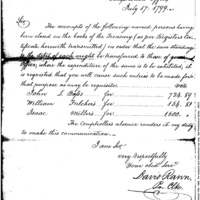 July 17. 1799.
Sir
The accounts of the following named persons having
been closed on the books of the Treasury (as per Register's cer-
tificate herewith transmitted) in order that the sum standing
to the debit of each might be transferred to those of
officer, where the expenditure of the same is to be exhibited, it
is requested that you will cause such entries to be made for
that purpose as may be requisite.
John
William
Isaac Millers 1600.
The Comptroller's absence renders it my duty
to make this communication.
I am Sir
very Respectfully
Your obed. Serv.
David Rawn,